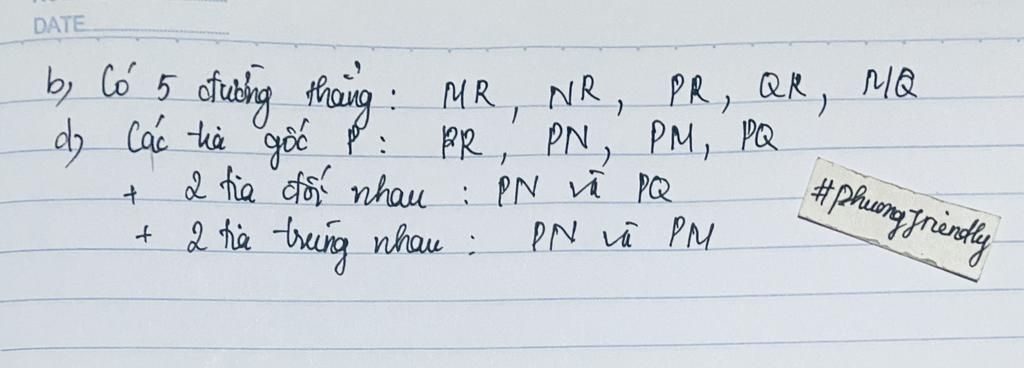 DATE
b, Có 5 đường thẳng : MR, NR, PR, QR, MQ
d, Các tia gốc P : PR, PN, PM, PQ
+ 2 tia đối nhau : PN và PQ
+ 2 tia trùng nhau : PN và PM
#phuongfriendly